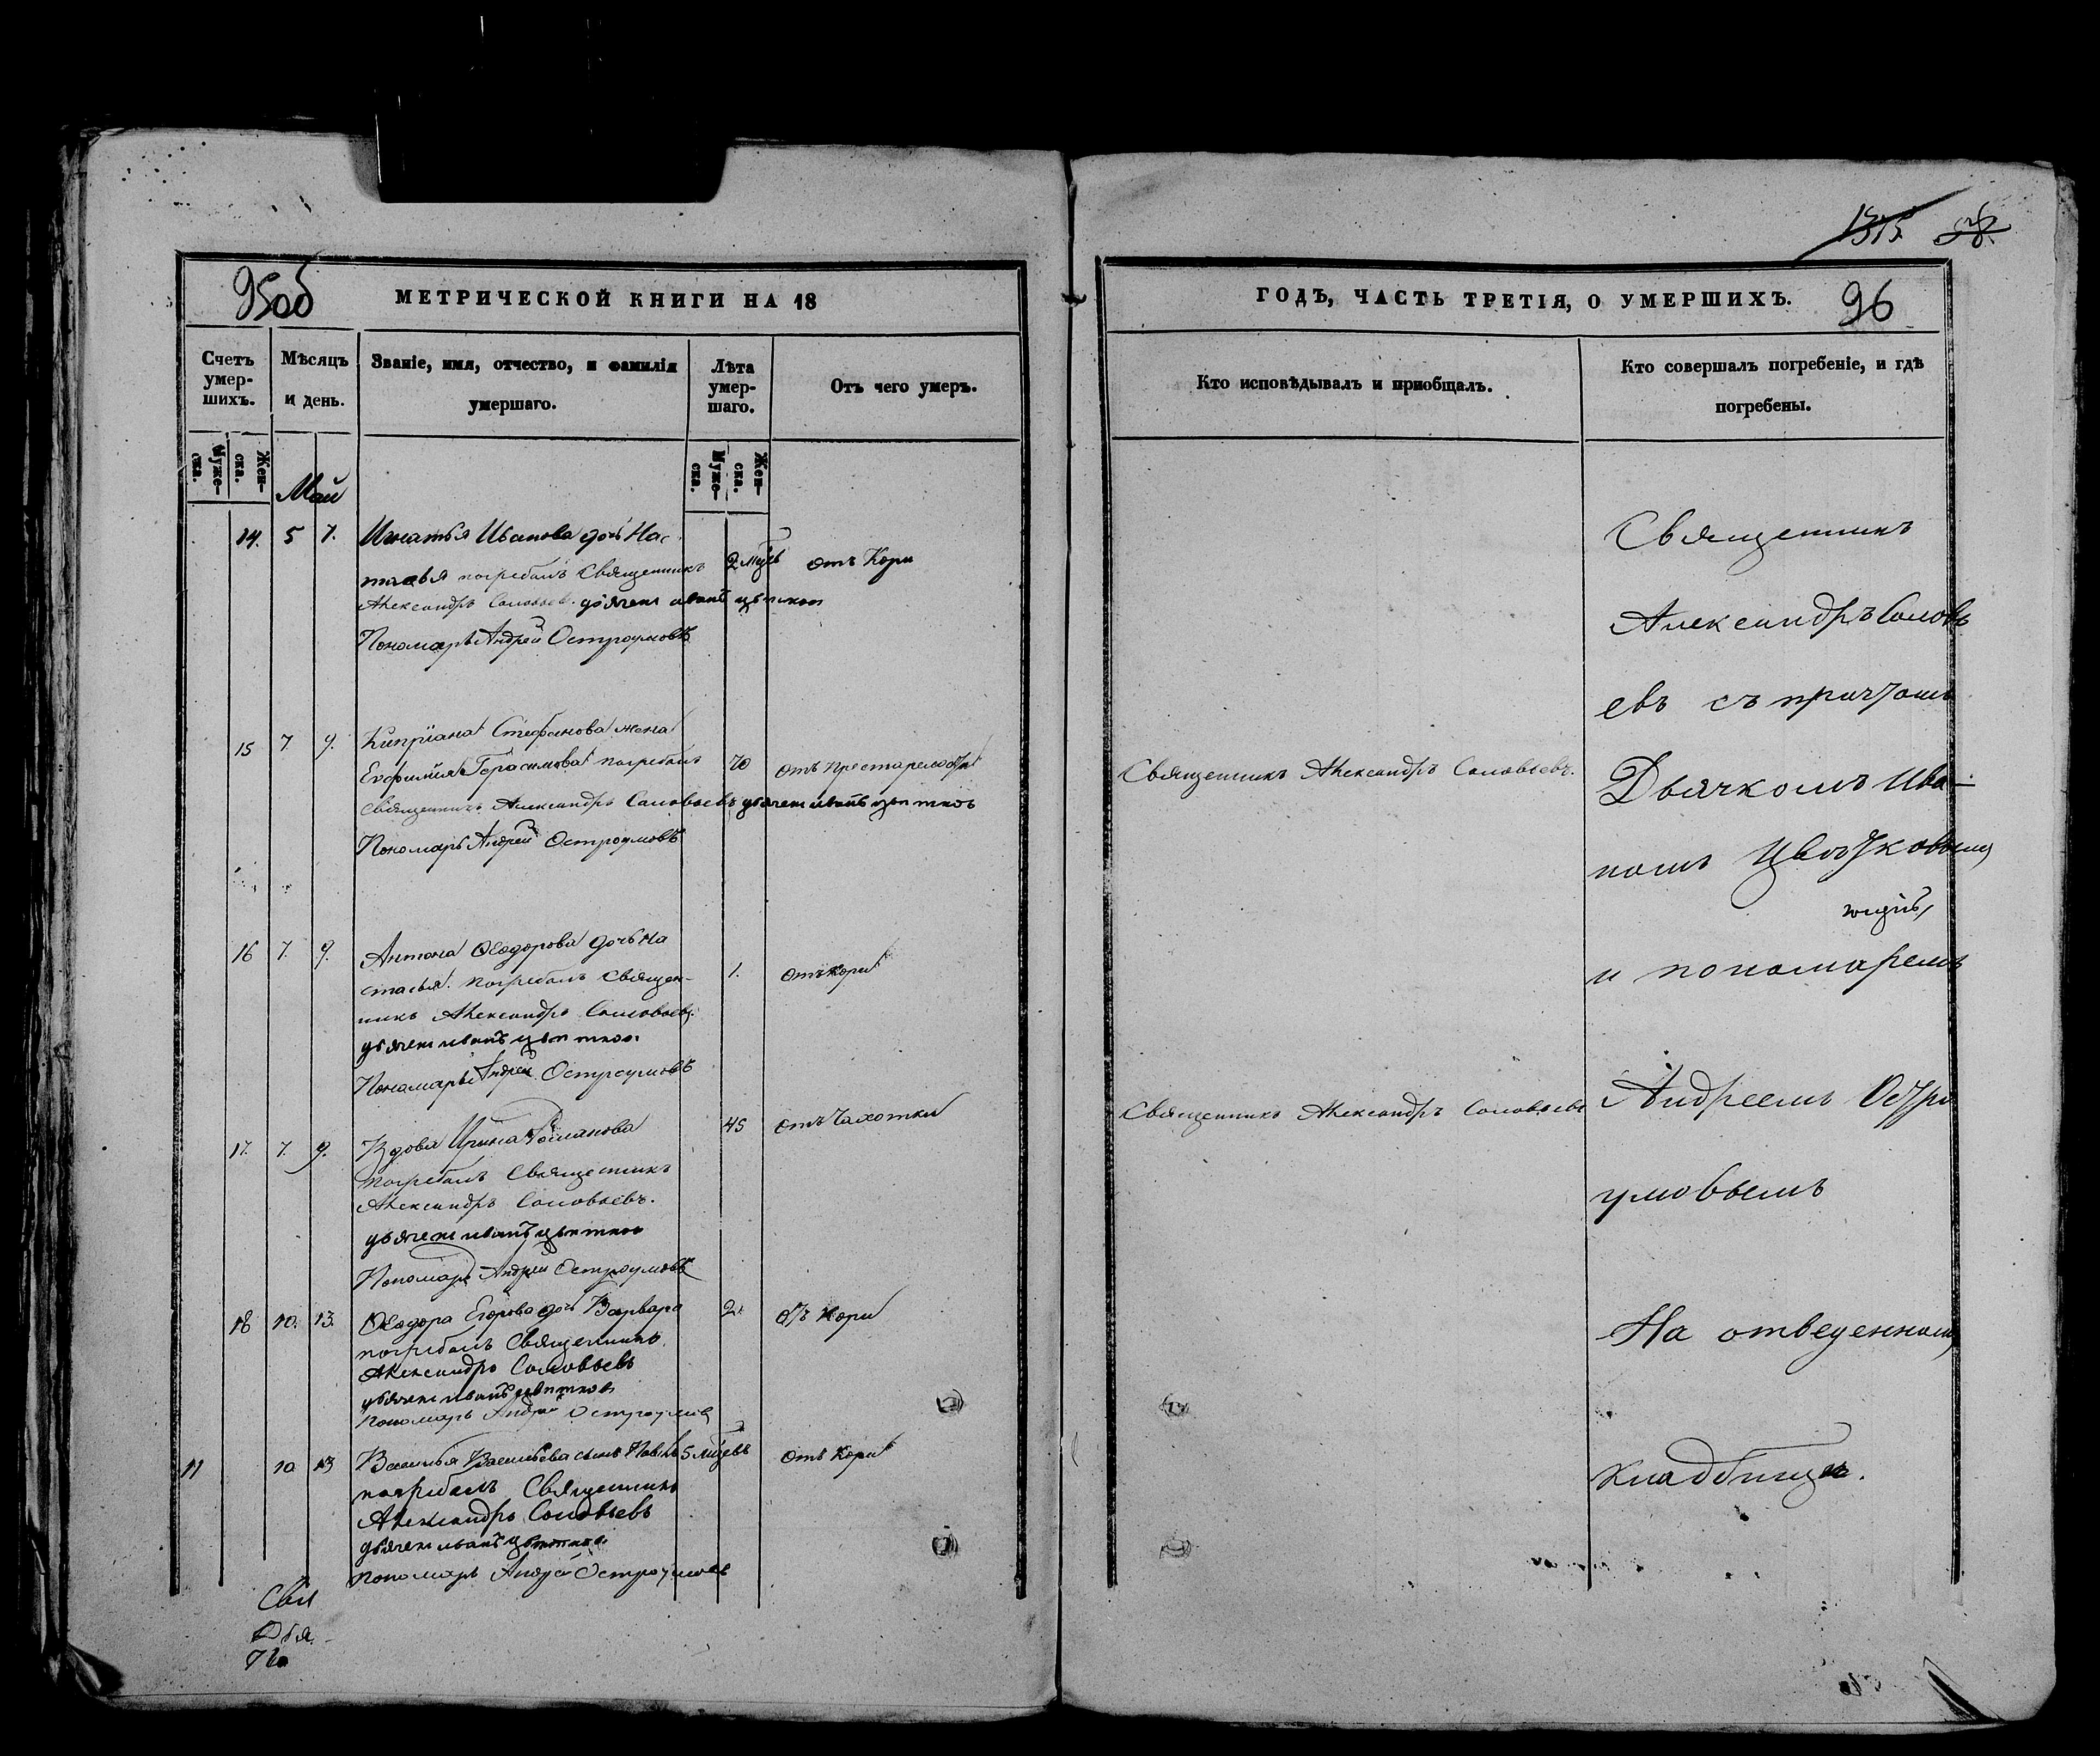 1315 58.
95об МЕТРИЧЕСКОЙ КНИГИ НА 18
Счетъ умер-шихъ.
Мѣсяцъ и день.
Званіе, имя, отчество, и фамилія умершаго.
Лѣта умер-шаго.
Отъ чего умеръ.
Муже-ска.
Жен-ска.
Муже-ска.
Жен-ска.
Май
14. 5 7. Игнатья Иванова дочь На-
талья погребалъ Священникъ 2 мцъ отъ Кори
Александръ Соловьевъ. дьячекъ иванъ цветков
Пономарь Андрей Остроумовъ
15 7 9. Кипріана Стефанова жена
Евфимія Герасимова погребалъ 70 отъ престарелости
Священникъ Александръ Соловьевъ дьячекъ иванъ цветковъ
Пономарь Андрей Остроумовъ
16 7. 9. Антона Ѳеодорова дочь На
стасья. погребалъ Священ- 1. отъ кори
никъ Александръ Соловьевъ.
дьячекъ иванъ цветков
Пономарь Андрей Остроумовъ
17. 7. 9. Вдова Ирина Романова 45 отъ Чахотки
погребалъ Священникъ
Александръ Соловьевъ.
дьячекъ иванъ цветков
Пономарь Андрей Остроумовъ
18 10. 13. Ѳеодора Егорова дочь Варвара 2. отъ кори
погребалъ Священникъ
Александръ Соловьевъ
дьячекъ иванъ цветков
пономарь Андрей Остроумов
11 10 13 Василья Васильева сынъ 5 мцевъ отъ Кори
погребалъ Священникъ
Александръ Соловьевъ
дьячекъ иванъ цветков
пономарь Андрей Остроумовъ
Свя
Дья
ГОДЪ, ЧАСТЬ ТРЕТІЯ, О УМЕРШИХЪ. 96
Кто исповѣдывалъ и пріобщалъ.
Кто совершалъ погребеніе, и гдѣ погребены.
Священникъ
Александръ Соловь
евъ съ причтомъ
Священникъ Александръ Соловьевъ.
Дьячкомъ Ива-
номъ Цвѣтковымъ
и пономаремъ
Священникъ Александръ Соловьевъ
Андреемъ Остро
умовымъ
На отведенномъ
кладбище.